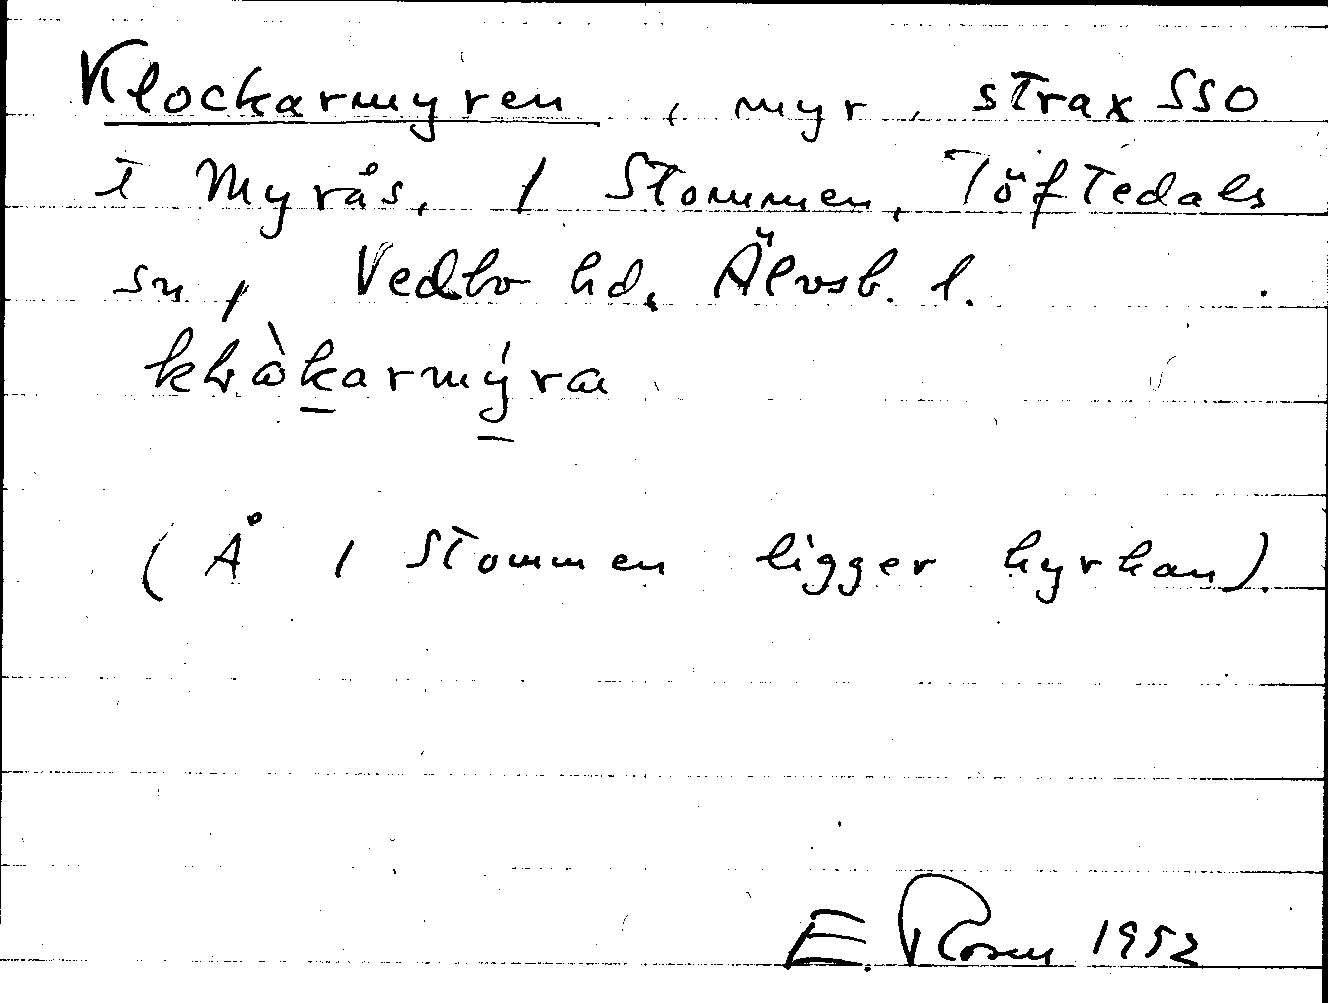 Klockarmyren, myr, strax SSO
i Myrås, 1 Stommen, Töftedals
sn, Vedbo hd, Älvsb. l.
(Å 1 Stommen ligger kyrkan).
E. Rosen 1952